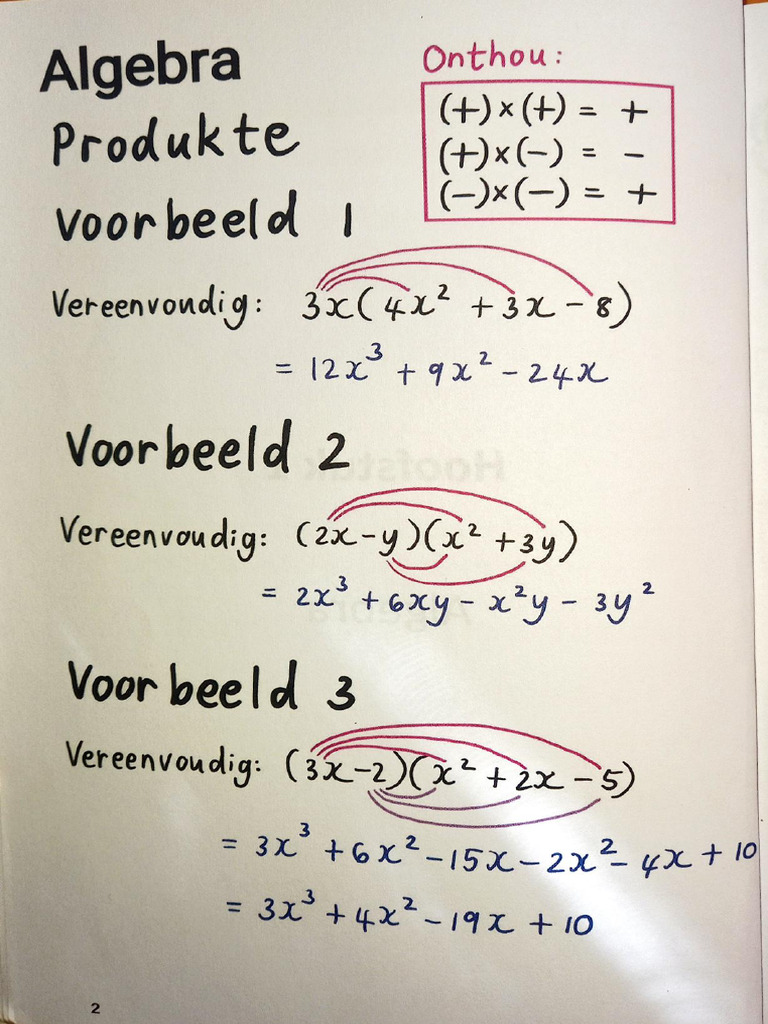 Algebra
Produkte
Voorbeeld 1
Onthou:
(+)×(+) = +
(+)×(-) = -
(-)×(-) = +
Vereenvoudig: 3x(4x² + 3x - 8)
= 12x³ + 9x² - 24x
Voorbeeld 2
Vereenvoudig: (2x-y)(x² + 3y)
= 2x³ + 6xy - x²y - 3y²
Voorbeeld 3
Vereenvoudig: (3x-2)(x² + 2x - 5)
= 3x³ + 6x² - 15x - 2x² - 4x + 10
= 3x³ + 4x² - 19x + 10
2